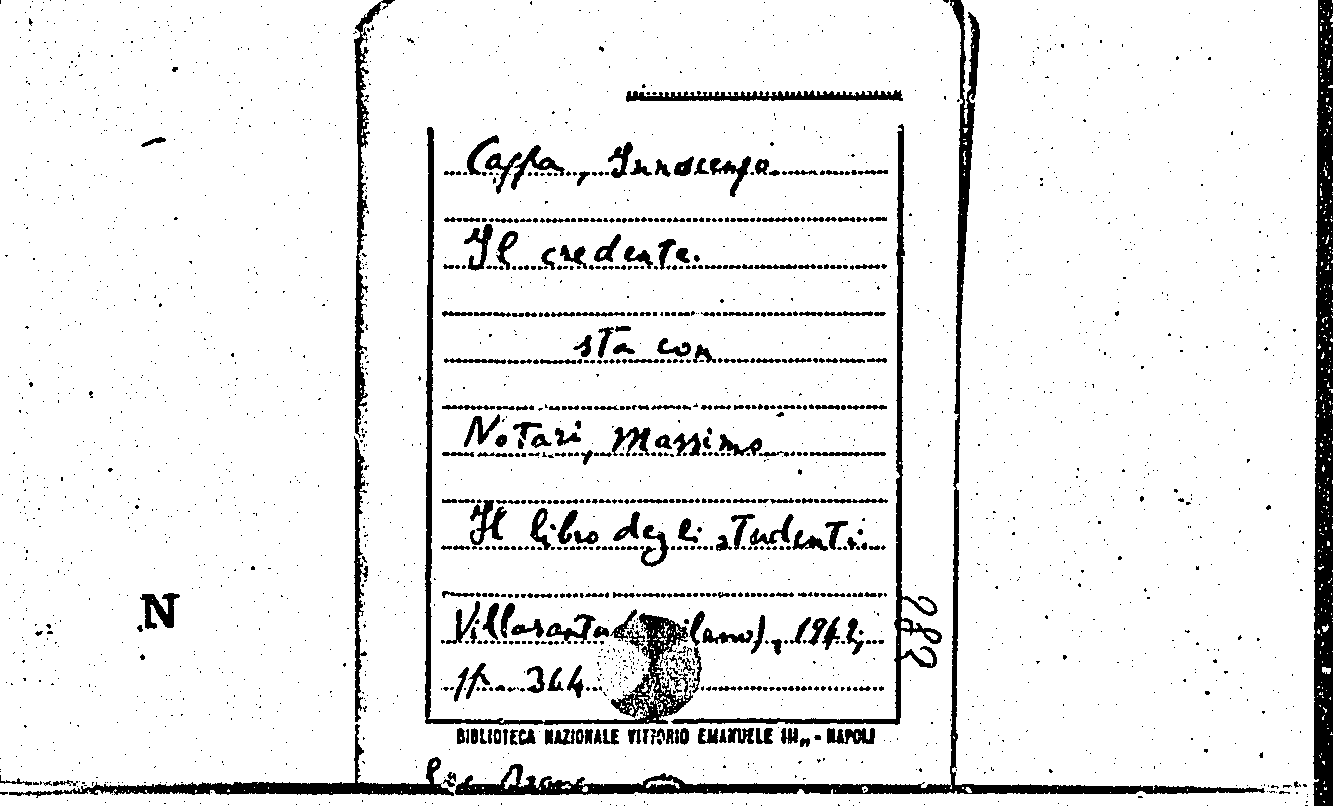 Cappa, Innocenzo.
Il credente.
sta con
Notari, Massimo
Il libro degli studenti.
Villasanta ilano), 1942;
pp. 344
283
N
BIBLIOTECA NAZIONALE VITTORIO EMANUELE III„ - NAPOLI